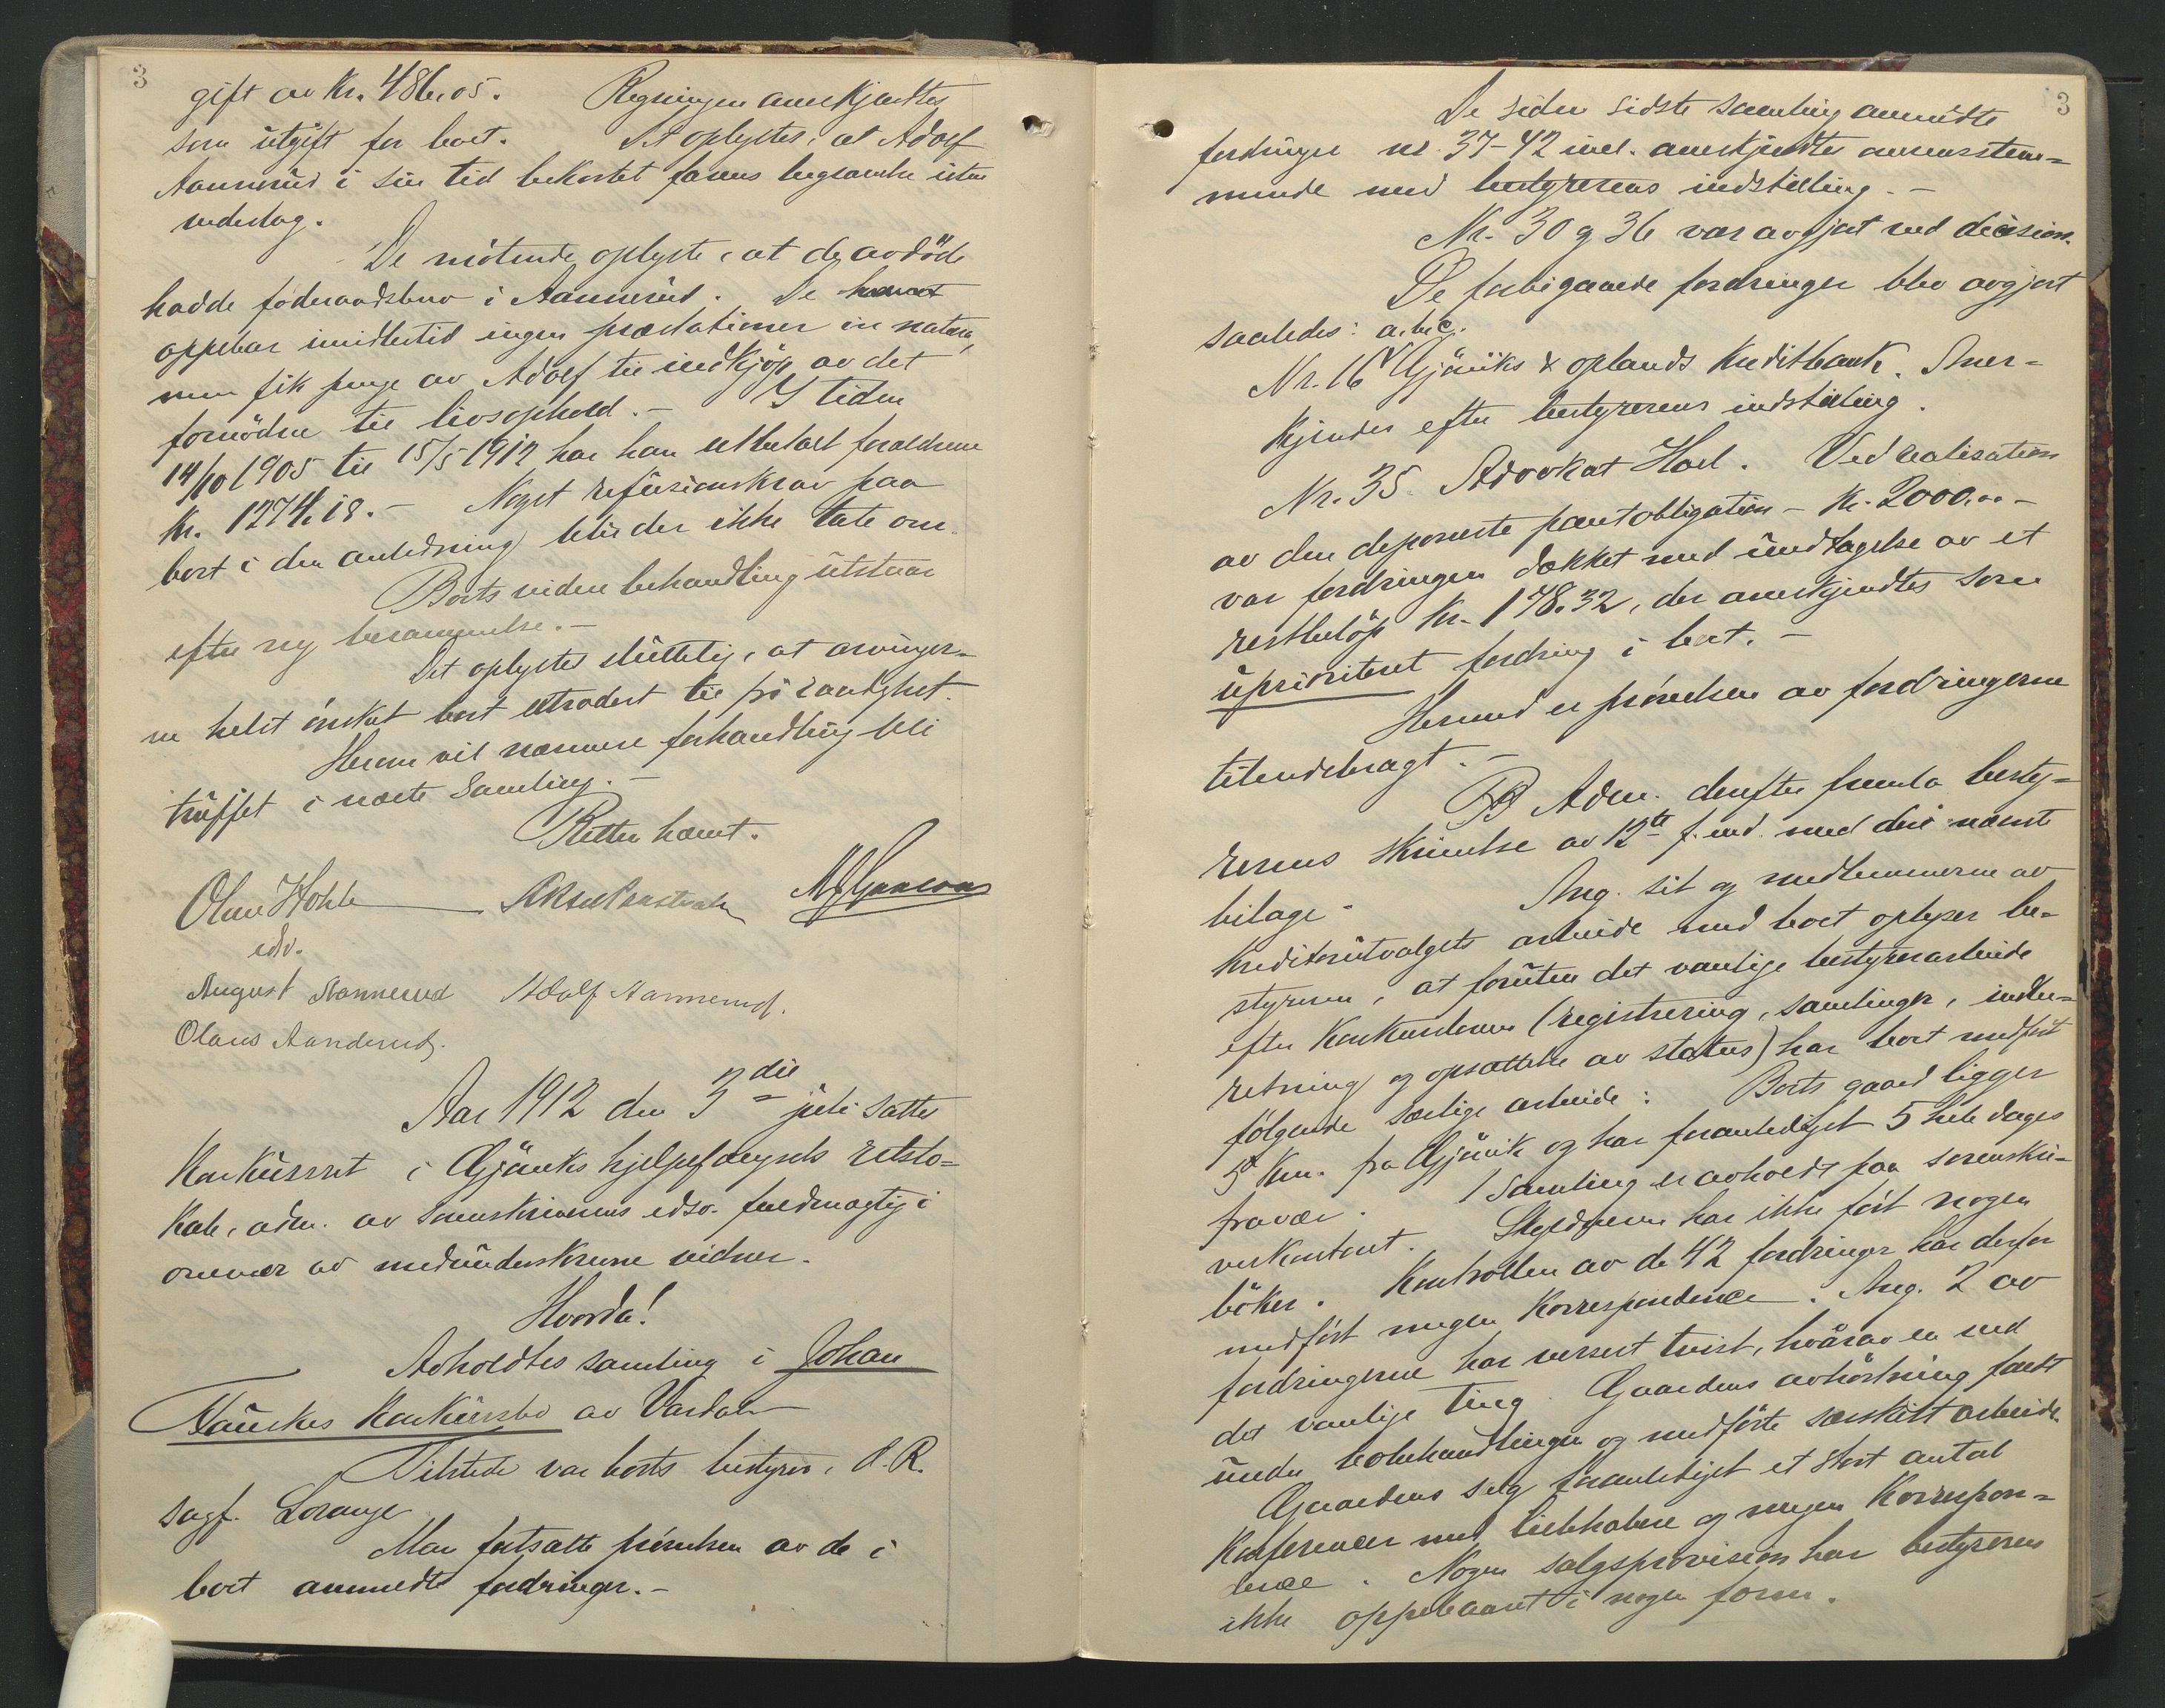 3
gift av Kr. 486.05. Regningen anerkjendtes
som utgift for boet. Det oplystes, at Adolf
Aannerud i sin tid bekostet farens begravelse uten
vederlag.
De mötende oplyste, at de avdöde
hadde föderaadsbrev i Aannerud. De
oppebar imidlertid ingen præstationer in natura,
men fik penge av Adolf til indkjöp av det
fornödne til livsophold.- I tiden
14/10 1905 til 15/5 1912 har han utbetalt forældrene
Kr. 1274.18.- Noget refusionskrav paa
boet i den anledning blir der ikke tale om.
Boets videre behandling utstaar
efter ny berammelse.-
Det oplystes sluttelig, at arvinger-
ne helst önsket boet utloddet til privat
Herom vil nærmere forhandling bli
truffet i næste samling.-
Retten hævet.
Oline Hohle
edv.
August Aannerud Adolf Aannerud.
Olaus Aannerud.
Aar 1912 den 3die juli sattes
konkursret i Gjöviks hjelpefængsels retslo-
kale, adm. av sorenskriverens edsv. fuldmægtig i
overvær av medunderskrevne vidner.
Hvorda!
Avholdtes samling i Johan
konkursbo av Vardal
Tilstede var boets bestyrer, O.R.
sagf. Lorange
Man fortsatte prövelsen av de i
boet anmeldte fordringer.-
3
De siden sidste samling anmeldte
fordringer nr. 37-42 incl. anerkjendtes overensstem-
mende med bestyrerens indstilling.-
Nr. 30 og 36 var avgjort ved decision.
De forbigaaede fordringer blev avgjort
saaledes:
Nr. 16 Gjöviks & oplands Kreditbank. Aner-
kjendes efter bestyrerens indstilling.
Nr. 35. Advokat Hoel. Ved realisation
av den deponerte pantobligation - Kr. 2000.00 -
var fordringen dækket med undtagelse av et
restbelöp Kr. 178.32, der anerkjendtes som
uprioritert fordring i boet.-
Hermed er prövelsen av fordringerne
tilendebragt.-
Adm. derefter fremla besty-
rerens skrivelse av 12te f. md. med deri nævnte
bilage.- Ang. sit og medlemmerne av
kreditorutvalgets arbeide med boet oplyser be-
styreren, at foruten det vanlige bestyrerarbeide
efter konkursloven (registrering, samlinger, indbe-
retning og opsættelse av status) har boet medfört
følgende særlige arbeide: Boets gaard ligger
5 Km. fra Gjövik og har foranlediget 5 hele dages
fravær. 1 samling er avholdt paa sorenskri-
verkontoret. Skyldneren har ikke fört nogen
böker. Kontrollen av de 42 fordringer har derfor
medfört megen korrespondence. Ang. 2 av
fordringerne har versert tvist, hvorav en ved
det vanlige ting. Gaardens avhöstning faldt
under bobehandlingen og medförte særskilt arbeide.
Gaardens salg foranlediget et stort antal
konferencer med liebhabere og megen korrespon-
dence. Nogen salgsprovision har bestyreren
ikke oppebaaret i nogen form.